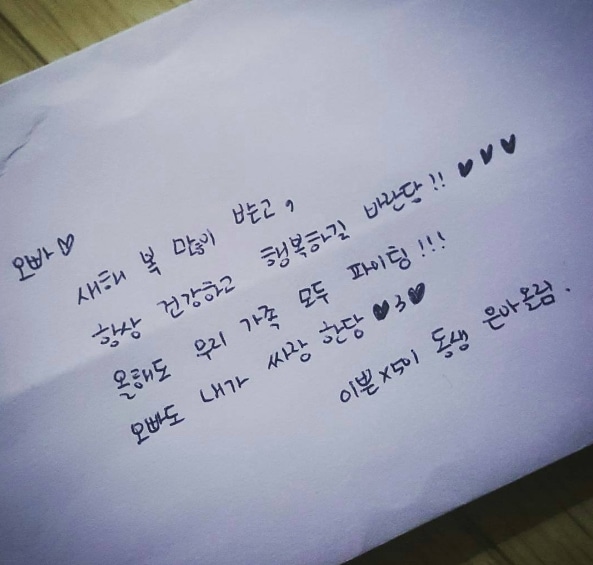 오빠♡
새해 복 많이 받고,
항상 건강하고 행복하길 바란당!! ♥♥♥
올해도 우리 가족 모두 파이팅!!!
오빠도 내가 싸랑 한당 ♥3♥
이쁜x501 동생 은아올림.